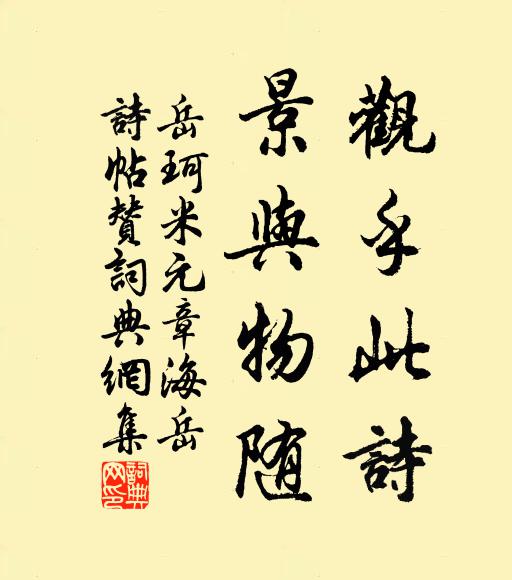 觀乎此詩
景與物随
岳珂米元章海岳
詩帖贊詞典網集
詞典网印